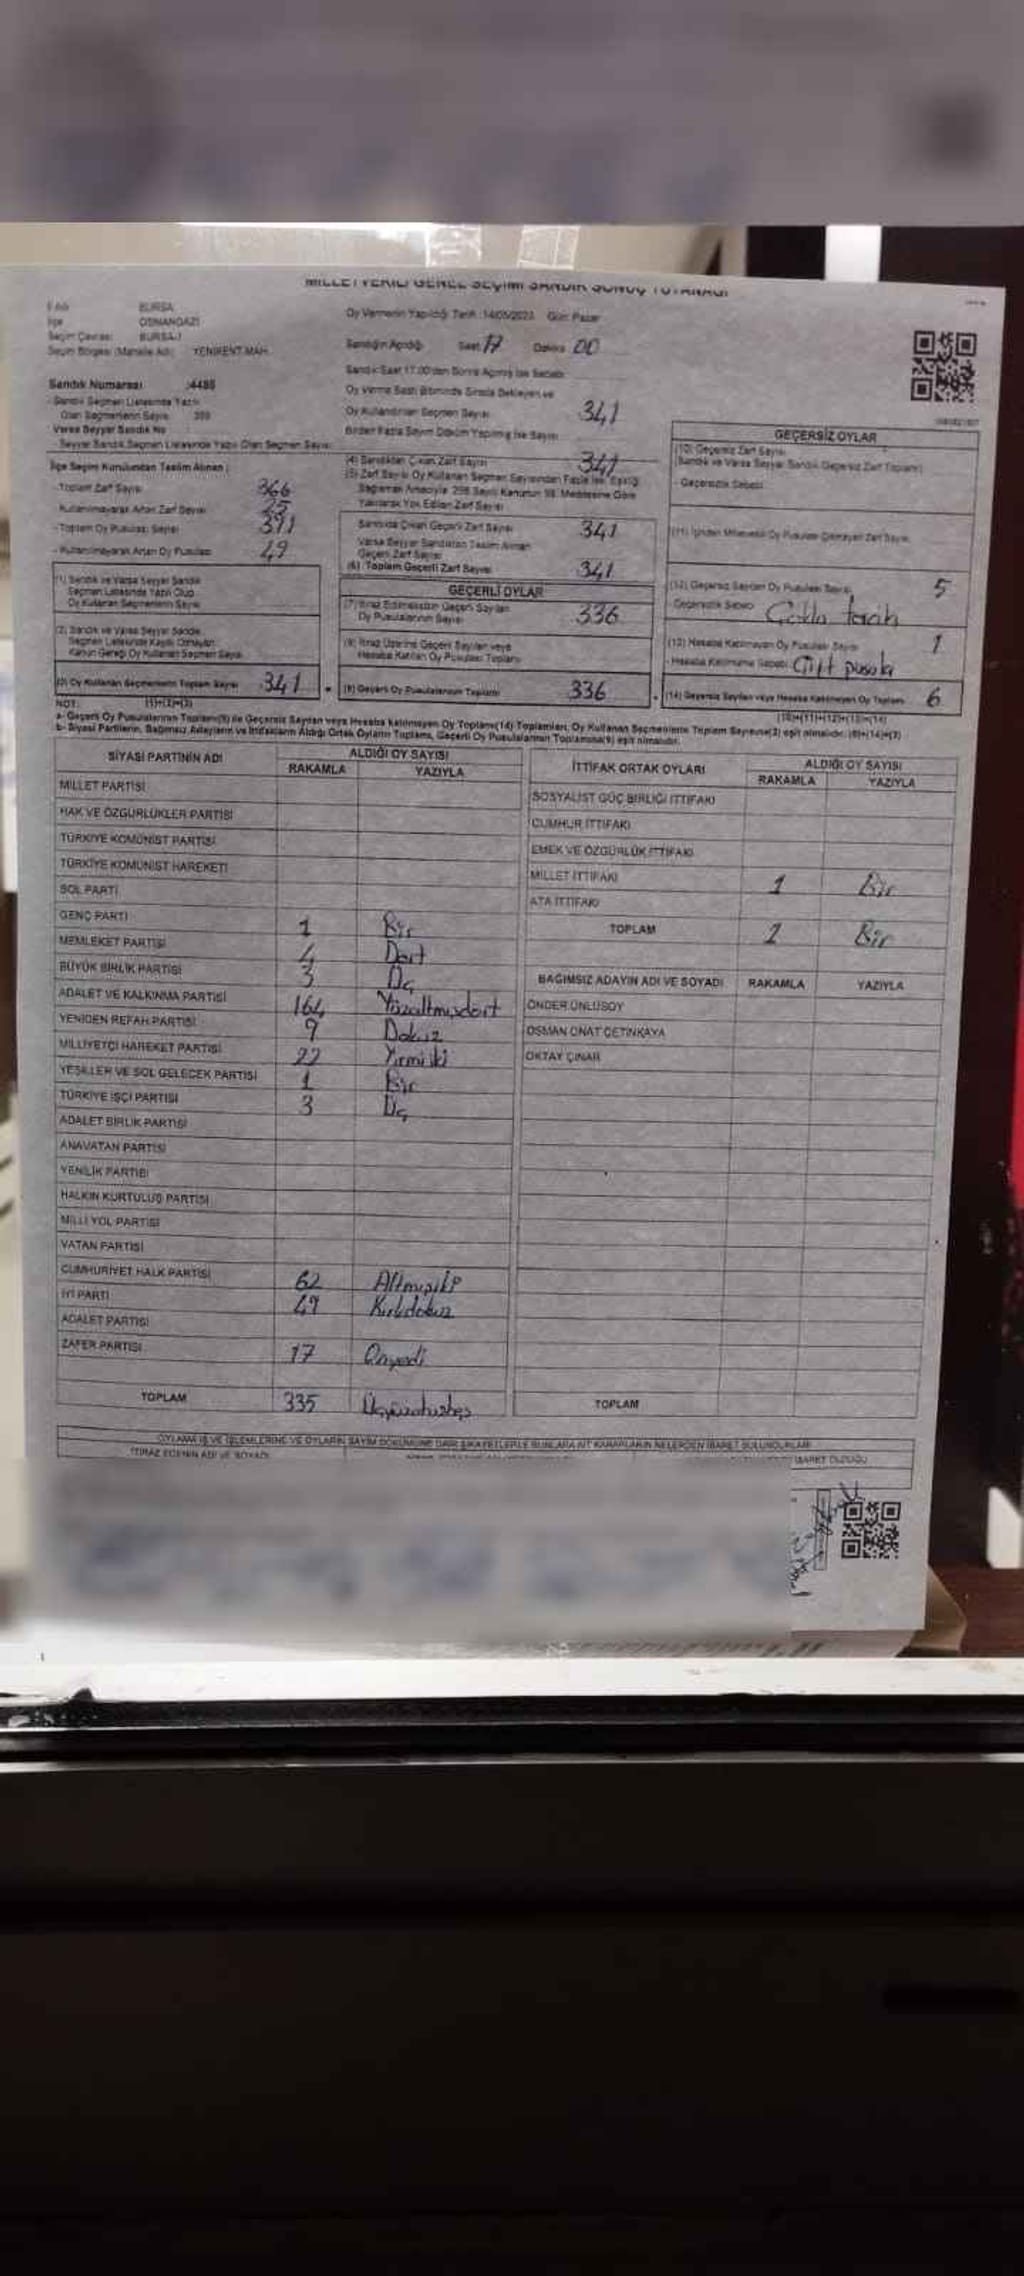 MİLLETVEKİLİ GENEL SEÇİMİ SANDIK SONUÇ TUTANAĞI
İl Adı BURSA
İlçe OSMANGAZİ
Seçim Çevresi BURSA-1
Seçim Bölgesi (Mahalle Adı) YENİKENT MAH.
Oy Vermenin Yapıldığı Tarih :14/05/2023 Gün: Pazar
Sandığın Açıldığı Saat 17 Dakika 00
Sandık Saat 17.00'den Sonra Açılmış İse Sebebi
Sandık Numarası :4486
Sandık Seçmen Listesinde Yazılı
Olan Seçmenlerin Sayısı
Varsa Seyyar Sandık No
Seyyar Sandık Seçmen Listesinde Yazılı Olan Seçmen Sayısı
Oy Verme Saati Bitiminde Sırada Bekleyen ve
Oy Kullandırılan Seçmen Sayısı 341
Birden Fazla Sayım Döküm Yapılmış İse Sayısı
İlçe Seçim Kurulundan Teslim Alınan :
-Toplam Zarf Sayısı 366
-Kullanılmayarak Artan Zarf Sayısı 25
-Toplam Oy Pusulası Sayısı 391
-Kullanılmayarak Artan Oy Pusulası 49
(1) Sandık ve Varsa Seyyar Sandık
Seçmen Listesinde Yazılı Olup
Oy Kullanan Seçmenlerin Sayısı
(2) Sandık ve Varsa Seyyar Sandık
Seçmen Listesinde Kaydı Olmayan
Kanun Gereği Oy Kullanan Seçmen Sayısı
(3) Oy Kullanan Seçmenlerin Toplam Sayısı 341
(4) Sandıktan Çıkan Zarf Sayısı 341
(5) Zarf Sayısı Oy Kullanan Seçmen Sayısından Fazla İse, Eşitliği
Sağlamak Amacıyla 298 Sayılı Kanunun 98. Maddesine Göre
Yakılarak Yok Edilen Zarf Sayısı
Sandıkta Çıkan Geçerli Zarf Sayısı 341
Varsa Seyyar Sandıktan Teslim Alınan
Geçerli Zarf Sayısı
(6) Toplam Geçerli Zarf Sayısı 341
GEÇERLİ OYLAR
(7) İtiraz Edilmeksizin Geçerli Sayılan
Oy Pusulalarının Sayısı 336
(8) İtiraz Üzerine Geçerli Sayılan veya
Hesaba Katılan Oy Pusulası Toplamı
(9) Geçerli Oy Pusulalarının Toplamı 336
GEÇERSİZ OYLAR
(10) Geçersiz Zarf Sayısı
(Sandık ve Varsa Seyyar Sandık Geçersiz Zarf Toplamı)
- Geçersizlik Sebebi
(11) İçinden Milletvekili Oy Pusulası Çıkmayan Zarf Sayısı
(12) Geçersiz Sayılan Oy Pusulası Sayısı 5
- Geçersizlik Sebebi Çoklu tercih
(13) Hesaba Katılmayan Oy Pusulası Sayısı 1
- Hesaba Katılmama Sebebi Çift pusula
(14) Geçersiz Sayılan veya Hesaba Katılmayan Oy Toplamı 6
NOT: (1)+(2)=(3) (10)+(11)+(12)+(13)=(14)
a- Geçerli Oy Pusulalarının Toplamı(9) ile Geçersiz Sayılan veya Hesaba Katılmayan Oy Toplamı(14) Toplamları, Oy Kullanan Seçmenlerin Toplam Sayısına(3) eşit olmalıdır. (9)+(14)=(3)
b- Siyasi Partilerin, Bağımsız Adayların ve İttifakların Aldığı Ortak Oyların Toplamı, Geçerli Oy Pusulalarının Toplamına(9) eşit olmalıdır.
SİYASİ PARTİNİN ADI ALDIĞI OY SAYISI
RAKAMLA YAZIYLA
MİLLET PARTİSİ
HAK VE ÖZGÜRLÜKLER PARTİSİ
TÜRKİYE KOMÜNİST PARTİSİ
TÜRKİYE KOMÜNİST HAREKETİ
SOL PARTİ
GENÇ PARTİ 1 Bir
MEMLEKET PARTİSİ 4 Dört
BÜYÜK BİRLİK PARTİSİ 3 Üç
ADALET VE KALKINMA PARTİSİ 164 Yüzaltmışdört
YENİDEN REFAH PARTİSİ 9 Dokuz
MİLLİYETÇİ HAREKET PARTİSİ 22 Yirmiiki
YEŞİLLER VE SOL GELECEK PARTİSİ 1 Bir
TÜRKİYE İŞÇİ PARTİSİ 3 Üç
ADALET BİRLİK PARTİSİ
ANAVATAN PARTİSİ
YENİLİK PARTİSİ
HALKIN KURTULUŞ PARTİSİ
MİLLİ YOL PARTİSİ
VATAN PARTİSİ
CUMHURİYET HALK PARTİSİ 62 Altmışiki
İYİ PARTİ 49 Kırkdokuz
ADALET PARTİSİ
ZAFER PARTİSİ 17 Onyedi
TOPLAM 335 Üçyüzotuzbeş
İTTİFAK ORTAK OYLARI ALDIĞI OY SAYISI
RAKAMLA YAZIYLA
SOSYALİST GÜÇ BİRLİĞİ İTTİFAKI
CUMHUR İTTİFAKI
EMEK VE ÖZGÜRLÜK İTTİFAKI
MİLLET İTTİFAKI 1 Bir
ATA İTTİFAKI
TOPLAM 1 Bir
BAĞIMSIZ ADAYIN ADI VE SOYADI RAKAMLA YAZIYLA
ÖNDER ÜNLÜSOY
OSMAN ONAT ÇETİNKAYA
OKTAY ÇINAR
TOPLAM
OYLAMA İŞ VE İŞLEMLERİNE VE OYLARIN SAYIM DÖKÜMÜNE DAİR ŞİKAYETLERLE BUNLARA AİT KARARLARIN NELERDEN İBARET BULUNDUKLARI
İTİRAZ EDENİN ADI VE SOYADI
İBARET OLDUĞU